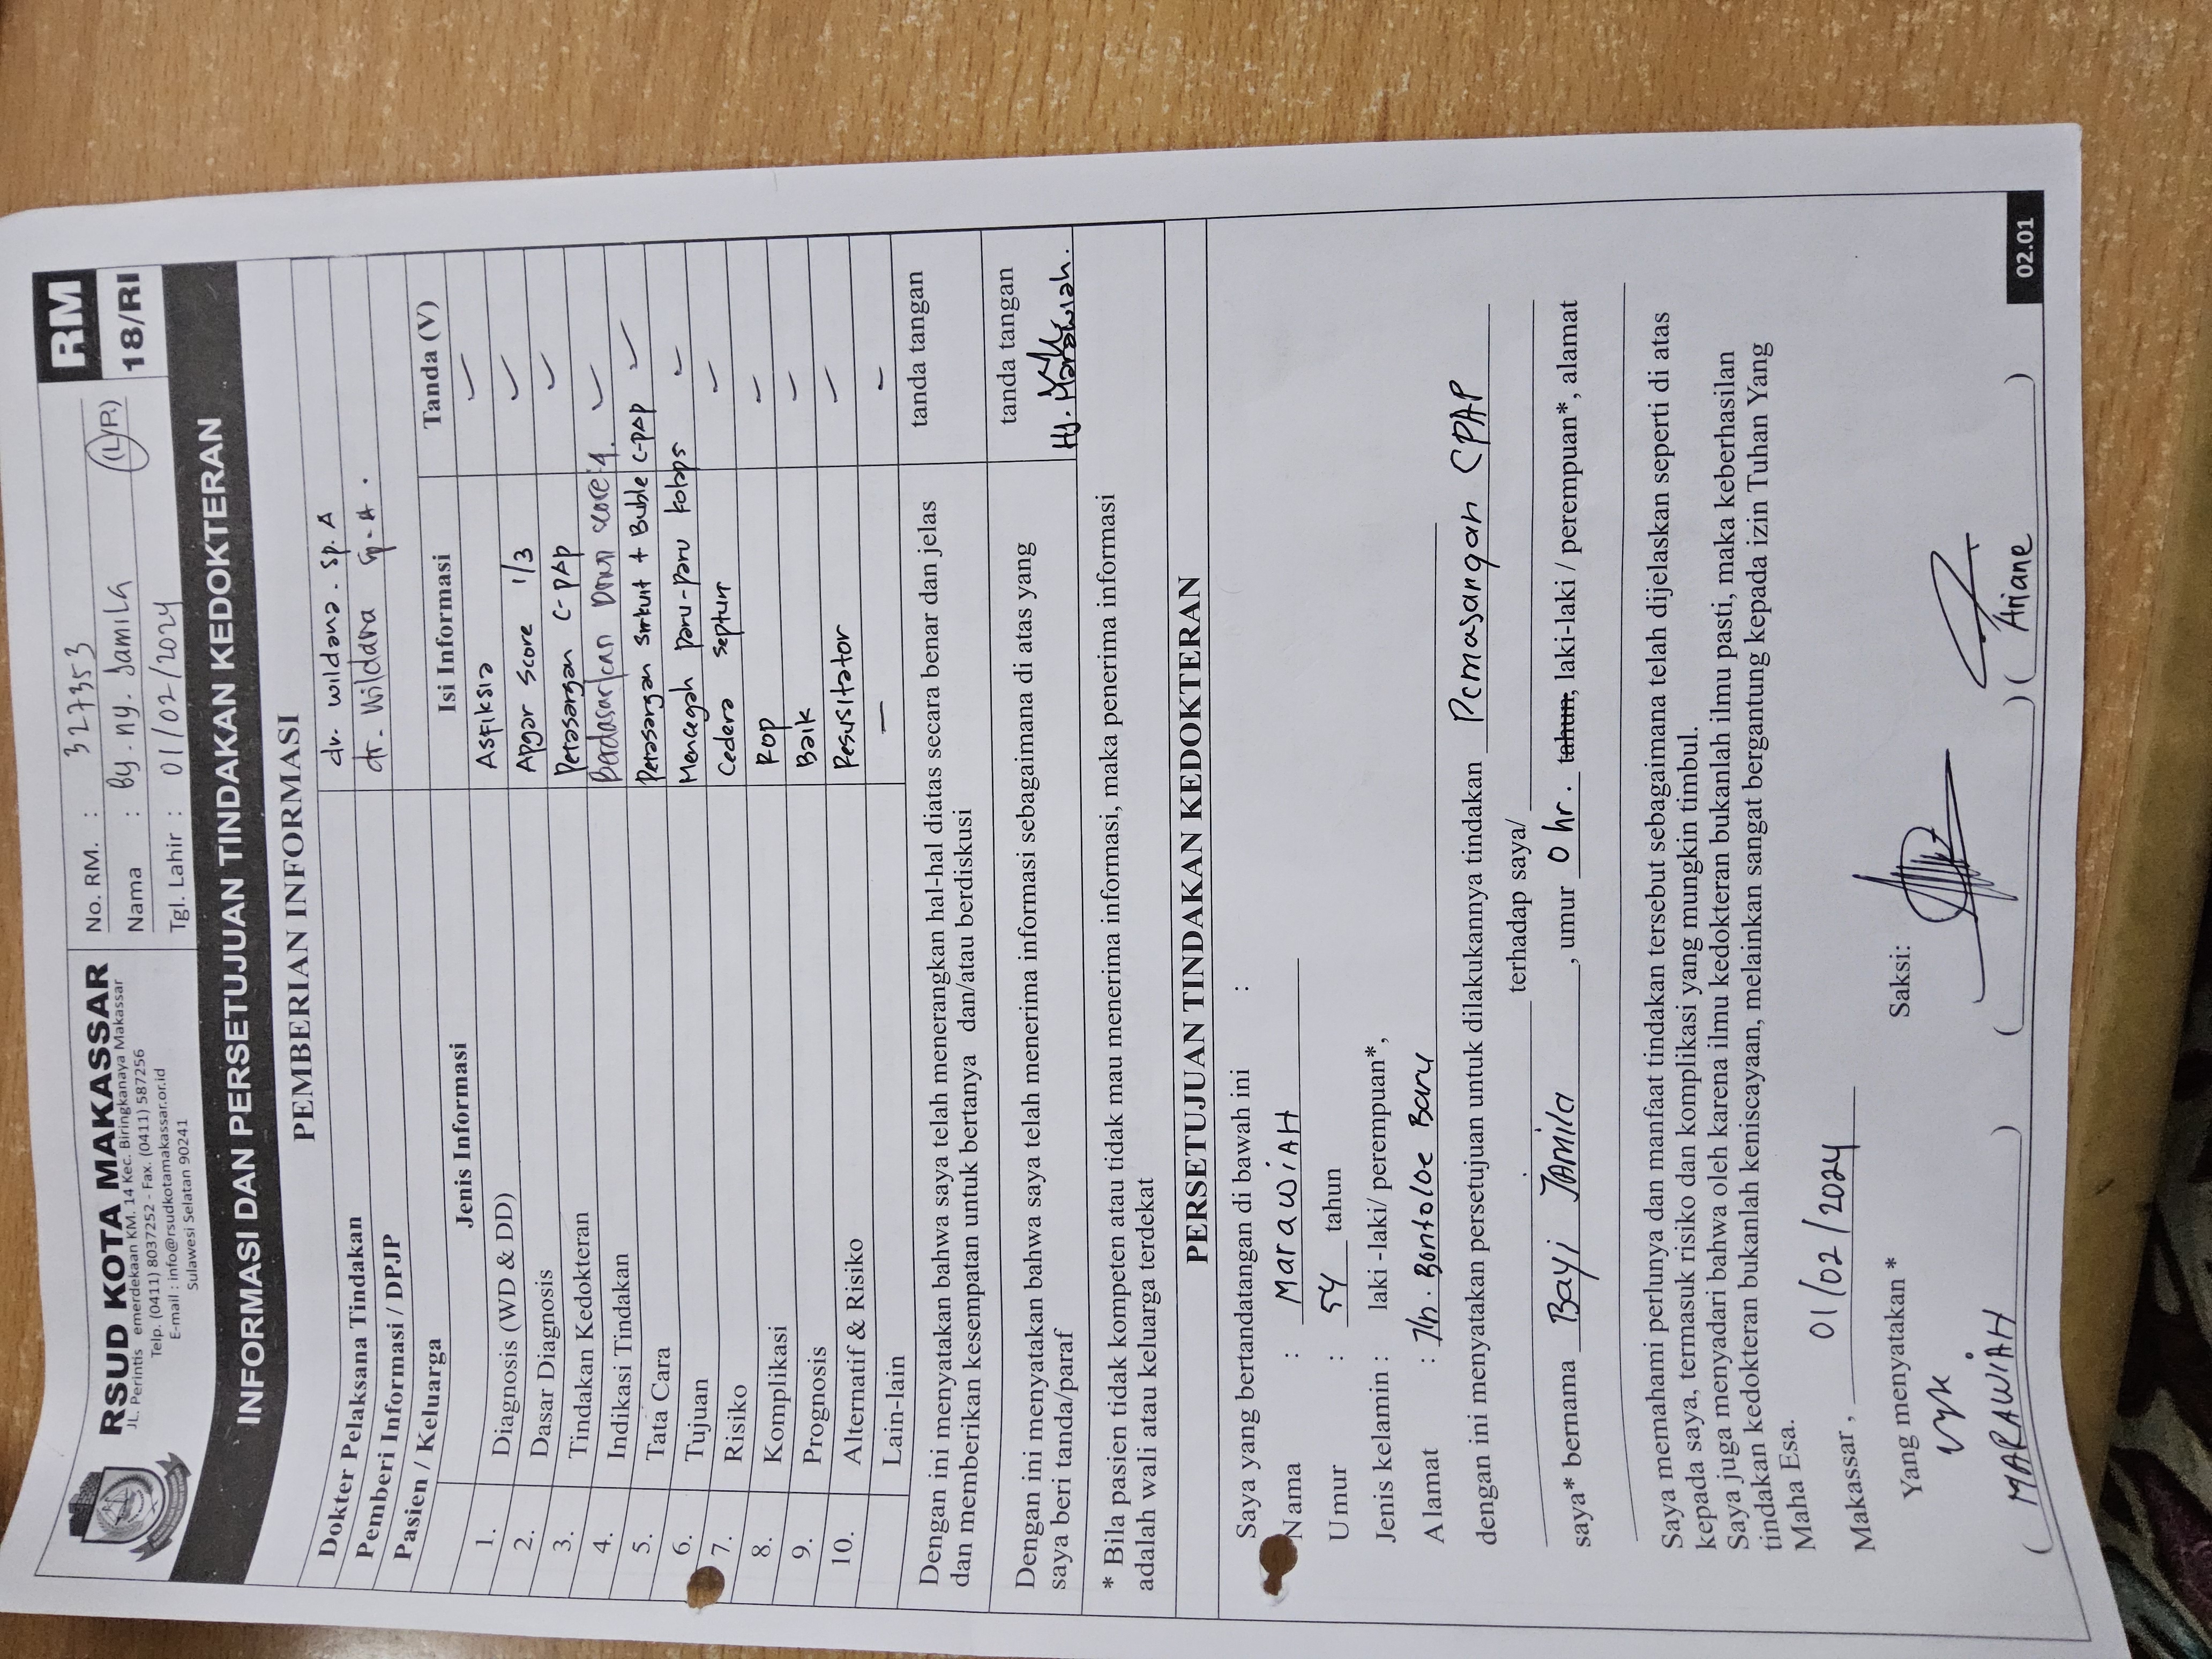 RSUD KOTA MAKASSAR
JL. Perintis emerdekaan KM. 14 Kec. Biringkanaya Makassar
Telp. (0411) 8037252 - Fax. (0411) 587256
E-mail : info@rsudkotamakassar.or.id
Sulawesi Selatan 90241
No. RM. : 327353
Nama : By. ny. Jamila (L/P.)
Tgl. Lahir : 01/02/2024
RM
18/RI
INFORMASI DAN PERSETUJUAN TINDAKAN KEDOKTERAN
PEMBERIAN INFORMASI
Dokter Pelaksana Tindakan dr. wildana. sp. A
Pemberi Informasi / DPJP dr. Wildana Sp. A.
Pasien / Keluarga
Jenis Informasi Isi Informasi Tanda (V)
1. Diagnosis (WD & DD) Asfiksia ✓
2. Dasar Diagnosis Apgar score 1/3 ✓
3. Tindakan Kedokteran Pemasangan C-PAP ✓
4. Indikasi Tindakan Berdasarkan Down score 4. ✓
5. Tata Cara Pemasangan sirkuit + Buble C-PAP ✓
6. Tujuan Mencegah paru-paru kolaps ✓
7. Risiko Cedera septum ✓
8. Komplikasi Rop ✓
9. Prognosis Baik ✓
10. Alternatif & Risiko Resusitator ✓
Lain-lain — –
Dengan ini menyatakan bahwa saya telah menerangkan hal-hal diatas secara benar dan jelas tanda tangan
dan memberikan kesempatan untuk bertanya dan/atau berdiskusi
Dengan ini menyatakan bahwa saya telah menerima informasi sebagaimana di atas yang tanda tangan
saya beri tanda/paraf Hj. Marawiah.
* Bila pasien tidak kompeten atau tidak mau menerima informasi, maka penerima informasi
adalah wali atau keluarga terdekat
PERSETUJUAN TINDAKAN KEDOKTERAN
Saya yang bertandatangan di bawah ini :
Nama : MarawiAH
Umur : 54 tahun
Jenis kelamin : laki -laki/ perempuan*,
Alamat : Jln. Bontoloe Baru
dengan ini menyatakan persetujuan untuk dilakukannya tindakan Pemasangan CPAP
terhadap saya/
saya* bernama Bayi JAmila, umur 0 hr. tahun, laki-laki / perempuan*, alamat
Saya memahami perlunya dan manfaat tindakan tersebut sebagaimana telah dijelaskan seperti di atas
kepada saya, termasuk risiko dan komplikasi yang mungkin timbul.
Saya juga menyadari bahwa oleh karena ilmu kedokteran bukanlah ilmu pasti, maka keberhasilan
tindakan kedokteran bukanlah keniscayaan, melainkan sangat bergantung kepada izin Tuhan Yang
Maha Esa.
Makassar , 01/02/2024
Yang menyatakan * Saksi:
( MARAWIAH ) ( ) ( Ariane )
02.01